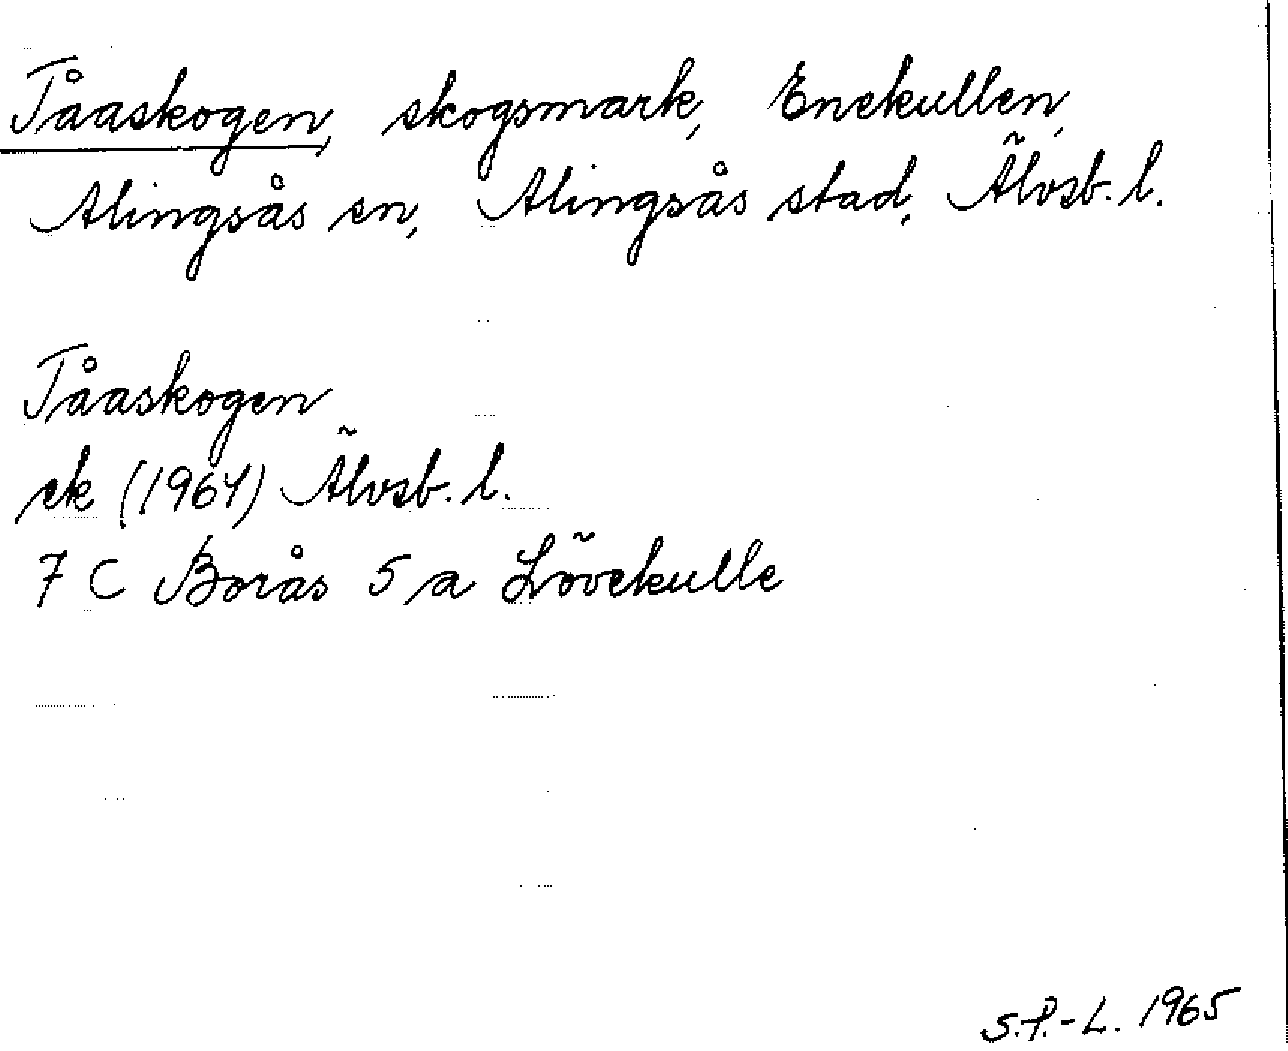 Tåaskogen, skogsmark, Enekullen,
Alingsås sn, Alingsås stad, Älvsb. l.
Tåaskogen
ek (1964) Älvsb. l.
7 C Borås 5 a Lövekulle
S.P.-L. 1965